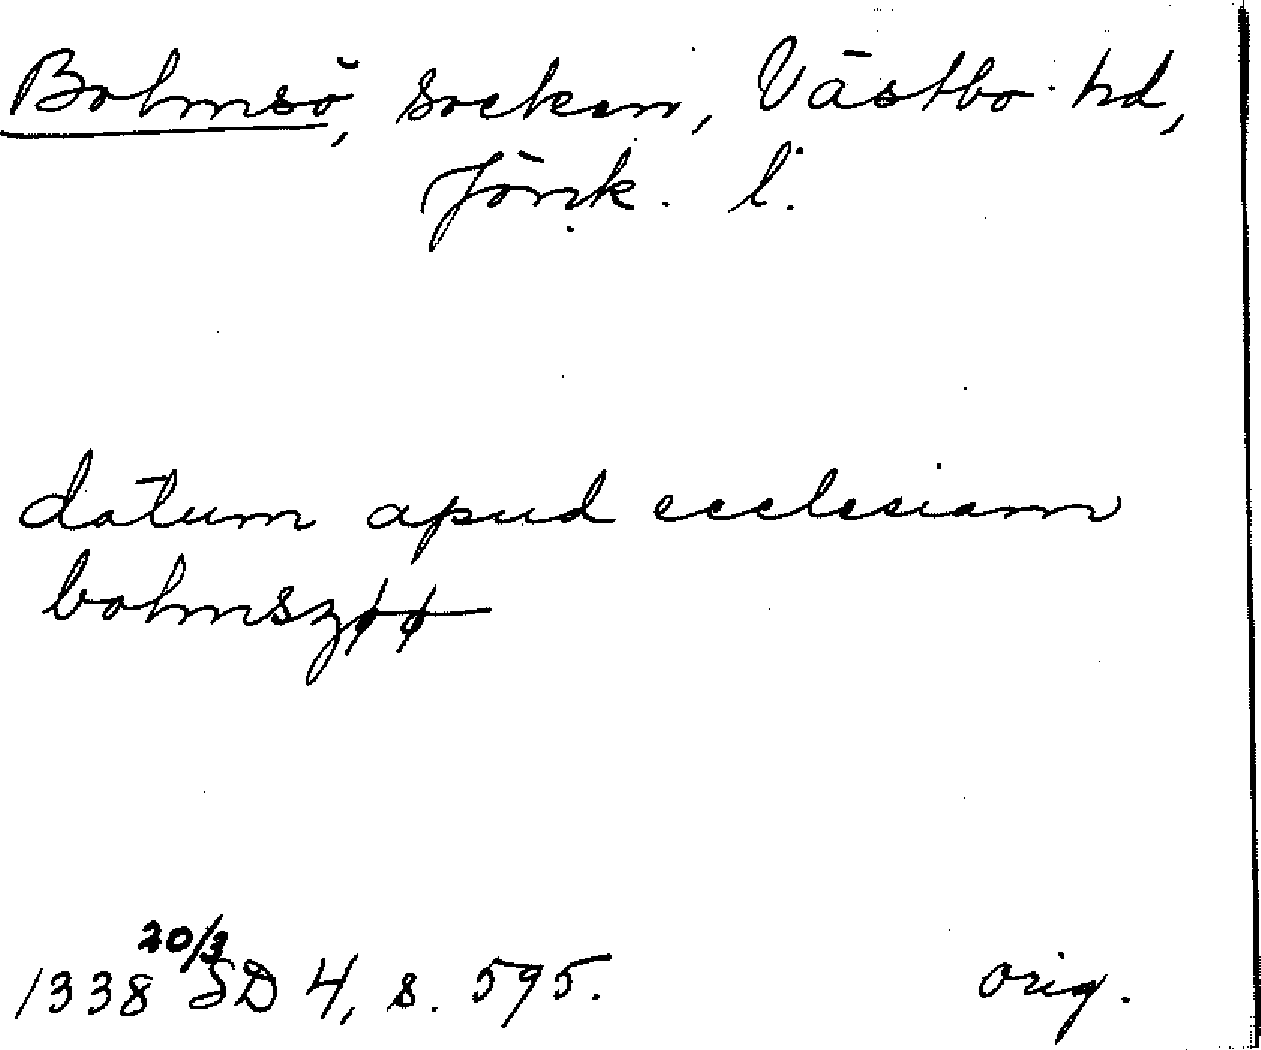 Bolmsö, socken, Västbo hd,
Jönk. l.
datum apud ecclesiam
bolmszøø
1338 20/3 SD 4, s. 595.
orig.